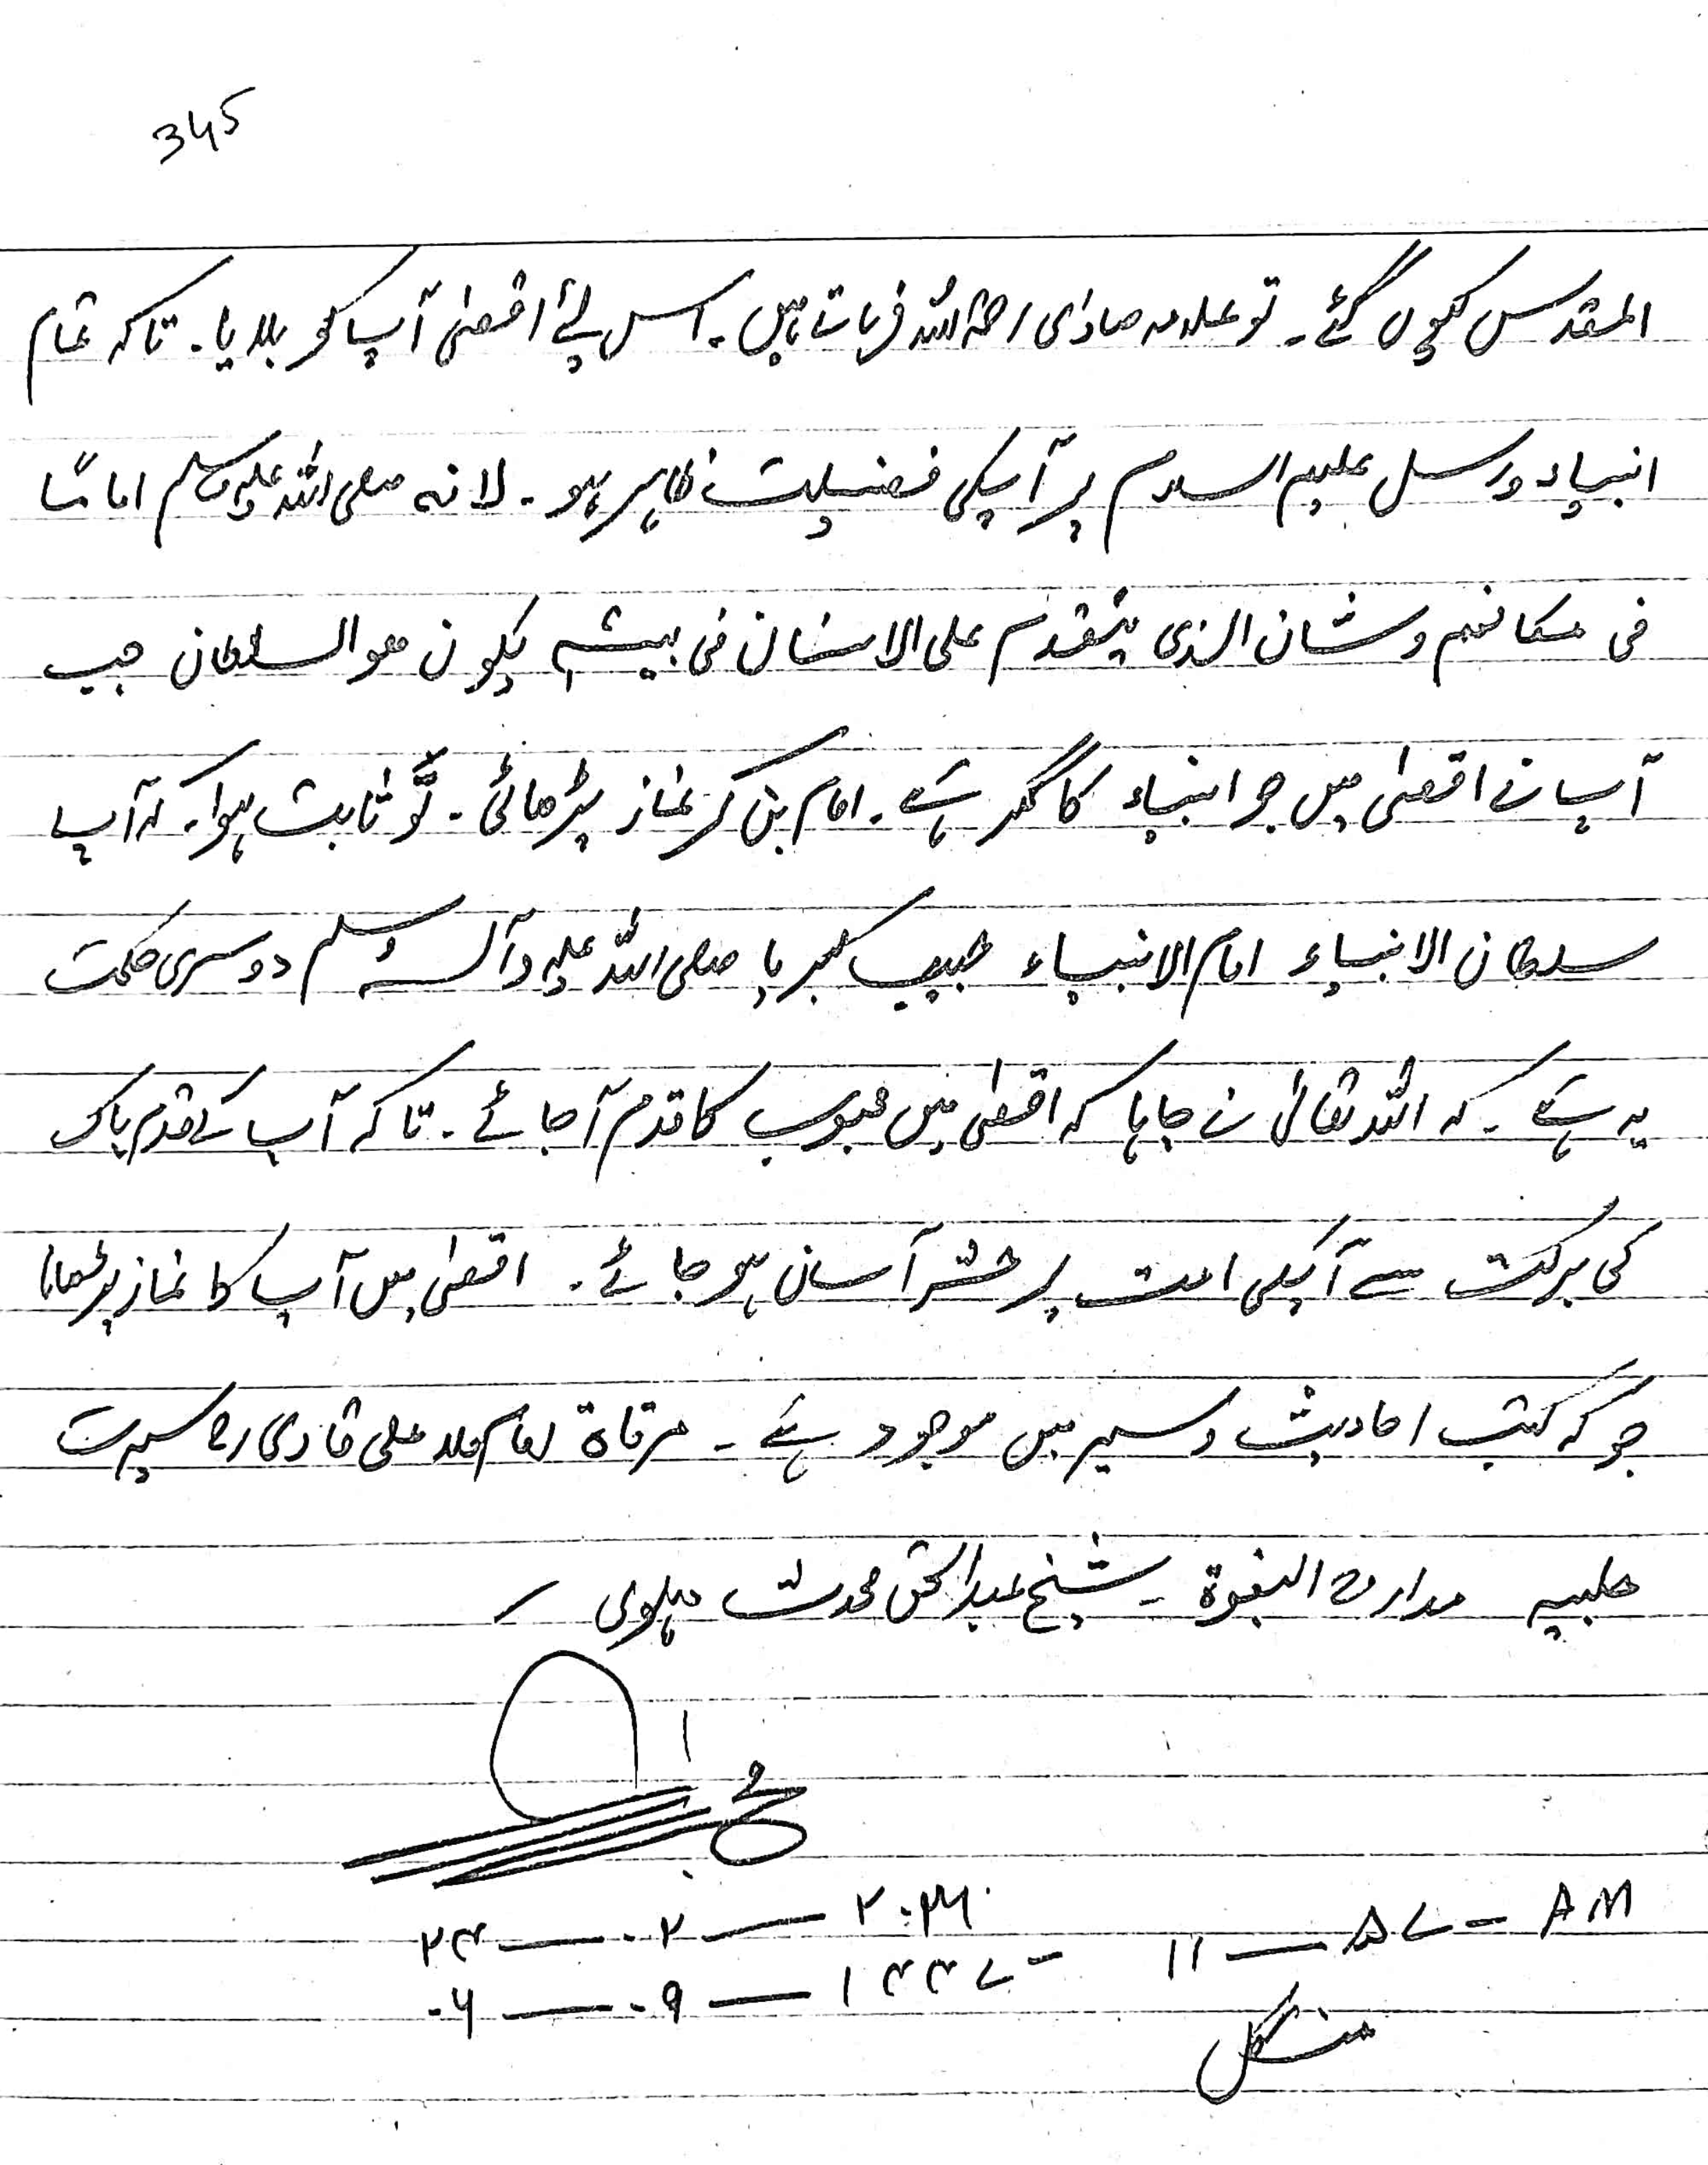 345
المقدس کیوں گئے۔ تو علامہ صاوی رحمۃ اللہ فرماتے ہیں۔ اس لئے اقصیٰ آپ کو بلایا۔ تاکہ تمام
انبیاء ورسل علیہم السلام پر آپکی فضیلت ظاہر ہو۔ لانہ صلی اللہ علیہ وسلم امامًا
فی مکانھم وشان الذی یتقدم علی الانسان فی بیتہ یکون ھو السلطان جب
آپ نے اقصیٰ میں جو انبیاء کا گھر ہے۔ امام بن کر نماز پڑھائی۔ تو ثابت ہوا۔ کہ آپ
سلطان الانبیاء امام الانبیاء حبیب کبریا صلی اللہ علیہ وآلہ وسلم دوسری حکمت
یہ ہے۔ کہ اللہ تعالیٰ نے چاہا کہ اقصیٰ میں محبوب کا قدم آجائے۔ تاکہ آپ کے قدم پاک
کی برکت سے آپکی امت پر حشر آسان ہو جائے۔ اقصیٰ میں آپ کا نماز پڑھانا
جو کہ کتب احادیث وسیر میں موجود ہے۔ مرقاۃ امام ملا علی قاری رح سیرت
حلبیہ مدارج النبوۃ۔ شیخ عبدالحق محدث دہلوی
۲۴ — ۰۲ — ۲۰۲۶ ۱۱ — ۵۷ - AM
۰۶ — ۰۹ — ۱۴۴۷
منگل